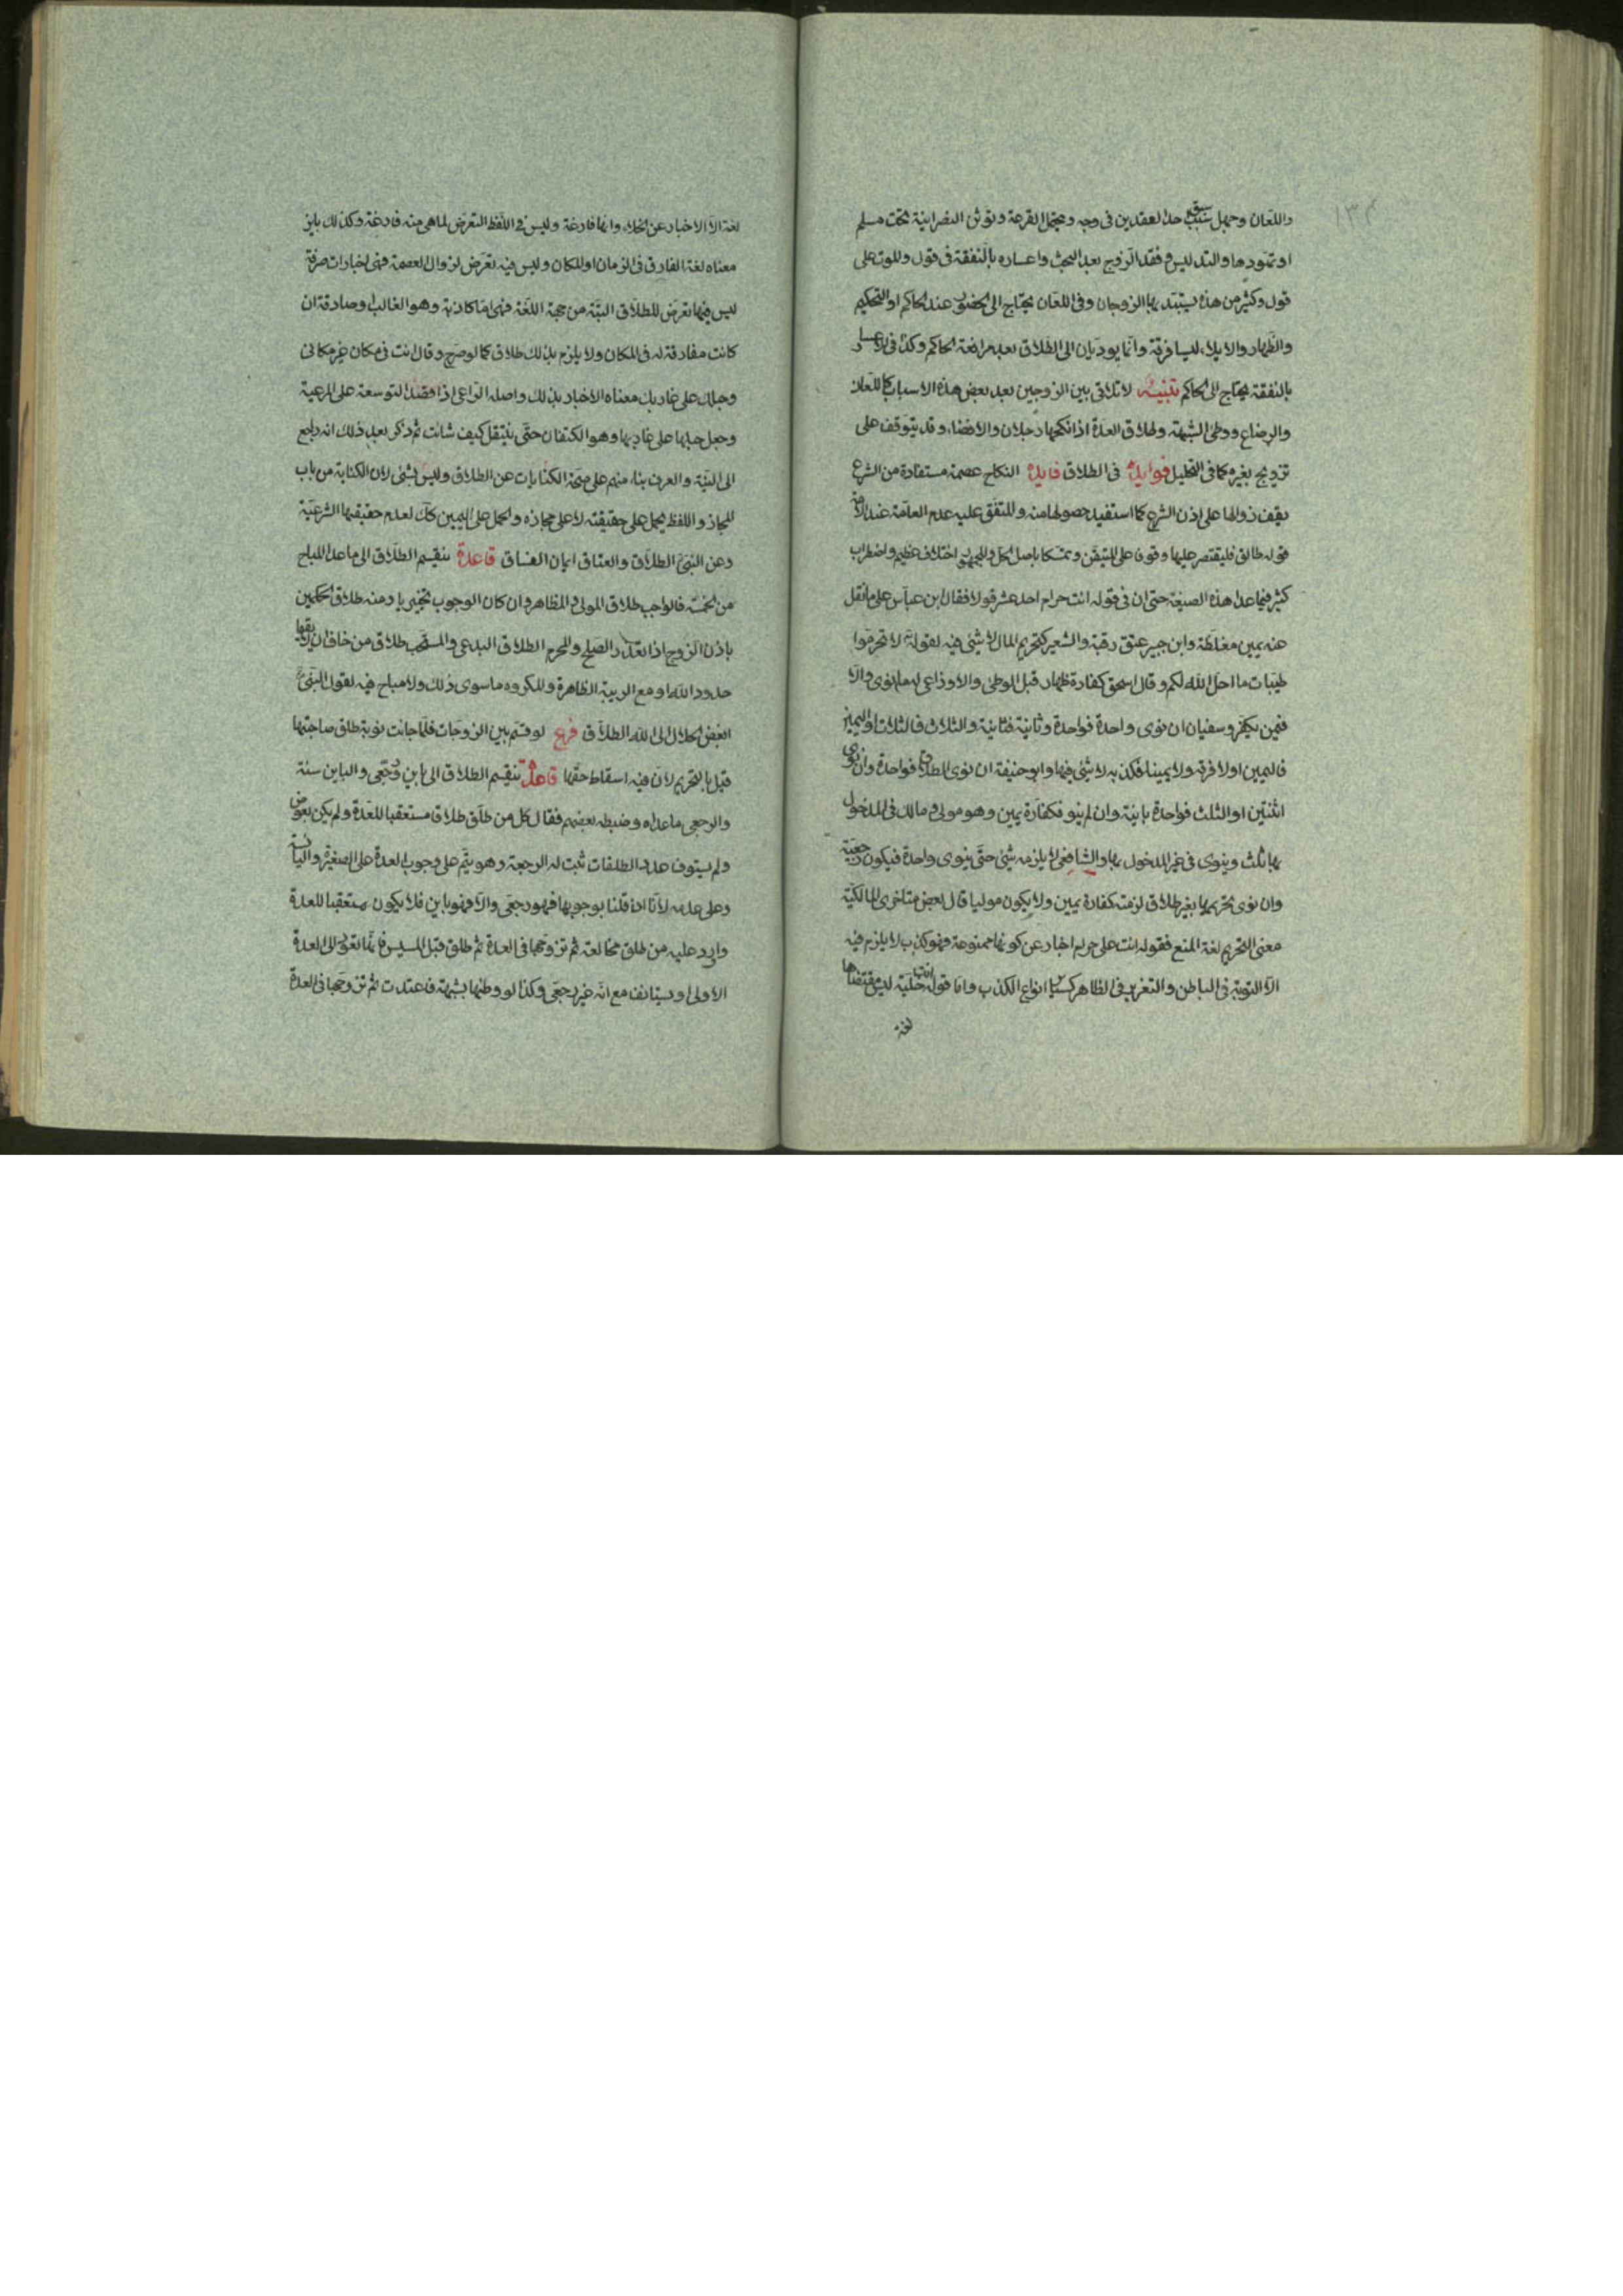 ١٣٢
واللعان وجهل سبق احد العقدين فى وجه ويحتمل القرعة وتوثن النصرانية تحت مسلم
او تهودها والتدليس وفقد الزوج بعد البحث واعساره بالنفقة فى قول والموت على
قول وكثير من هذه يستبد بها الزوجان وفى اللعان يحتاج الى الحضور عند الحاكم او التحكيم
والظهار والايلاء ليسا فرقة وانما يوديان الى الطلاق بعد مرافعة الحاكم وكذا فى الاعسار
بالنفقة يحتاج الى الحاكم تنبيه لا تلاقى بين الزوجين بعد بعض هذه الاسباب كاللعان
والرضاع ووطى الشبهة ولحاق العدة اذا نكحها دخلان والافضاء وقد يتوقف على
تزويج بغيره كما فى التحليل فوايد فى الطلاق فايدة النكاح عصمة مستفادة من الشرع
يقف زوالها على اذن الشرع كما استفيد حصولها منه والمتفق عليه عدم العامة عند الامة
قوله طالق فليقتصر عليها وقوفا على المتيقن وتمسكا باصل الحل وللجمهور اختلاف عظيم واضطراب
كثير فيما عدا هذه الصيغة حتى ان فى قوله انت حرام احد عشر قولا فقال ابن عباس على ما نقل
عنه يمين مغلظة وابن جبير عتق رقبة والشعبى كتحريم المال لا شىء فيه لقوله تع لا تحرموا
طيبات ما احل الله لكم وقال اسحق كفارة ظهار قبل الوطى والاوزاعى له ما نوى والا
فيمين يكفر وسفيان ان نوى واحدة فواحدة وثانية فثانية والثلاث فالثلاث او اليمين
فاليمين اولا فرقة ولا يمينا فكذبه لا شىء فيها وابو حنيفة ان نوى الطلاق فواحدة وان نوى
اثنتين او الثلث فواحدة باينة وان لم ينو فكفارة يمين وهو مولى ومالك فى المدخول
بها ثلث وينوى فى غير المدخول بها والشافعى لا يلزمه شىء حتى ينوى واحدة فيكون رجعية
وان نوى تحريمها بغير طلاق لزمته كفارة يمين ولا يكون موليا قال بعض متاخرى المالكية
معنى التحريم لغة المنع فقوله انت على حرام اخبار عن كونها ممنوعة فهو كذب لا يلزم فيه
الا التوبة فى الباطن والتعزير فى الظاهر كساير انواع الكذب واما قوله انت خلية ليس مقتضاها
لغة
لغة الا الاخبار عن الخلاء وانها فارغة وليس فى اللفظ التعرض لما هى منه فارغة وكذلك باين
معناه لغة المفارق فى الزمان او المكان وليس فيه تعرض لزوال العصمة فهى اخبارات صرفة
ليس فيها تعرض للطلاق البتة من جهة اللغة فهى اما كاذبة وهو الغالب او صادقة ان
كانت مفارقة له فى المكان ولا يلزم بذلك طلاق كما لو صرح وقال انت فى مكان غير مكانى
وحبلك على غاربك معناه الاخبار بذلك واصله الراعى اذا قصد التوسعة على المرعية
وجعل حبلها على غاربها وهو الكتفان حتى ينتقل كيف شائت ثم ذكر بعد ذلك انه راجع
الى النية والعرف بناء منهم على صحة الكنايات عن الطلاق وليس بشىء لان الكناية من باب
المجاز واللفظ يحمل على حقيقته لا على مجازه والحمل على اليمين كذلك لعدم حقيقتها الشرعية
وعن النبى الطلاق والعتاق ايمان الفساق قاعدة ينقسم الطلاق الى ما عدا المباح
من الخمسة فالواجب طلاق المولى والمظاهر وان كان الوجوب تخييريا ومنه طلاق الحكمين
باذن الزوج اذا تعذر الصلح والمحرم الطلاق البدعى والمستحب طلاق من خاف ان لا يقيما
حدود الله او مع الريبة الظاهرة والمكروه ما سوى ذلك ولا مباح فيه لقول النبى
ابغض الحلال الى الله الطلاق فرع لو قسم بين الزوجات فلما جائت نوبة طلق صاحبتها
قيل بالتحريم لان فيه اسقاط حقها قاعدة ينقسم الطلاق الى باين ورجعى والباين ستة
والرجعى ما عداه وضبطه بعضهم فقال كل من طلق طلاق مستعقبا للعدة ولم يكن بعوض
ولم يستوف عدد الطلقات ثبت له الرجعة وهو يتم على وجوب العدة على الصغيرة واليائسة
وعلى عدمه لانا ان قلنا بوجوبها فهو رجعى والا فهو باين فلا يكون مستعقبا للعدة
واورد عليه من طلق مخالعة ثم تزوجها فى العدة ثم طلق قبل المسيس فانها تعود الى العدة
الاولى او يستانف مع انه غير رجعى وكذا لو وطئها بشبهة فاعتدت ثم تزوجها فى العدة